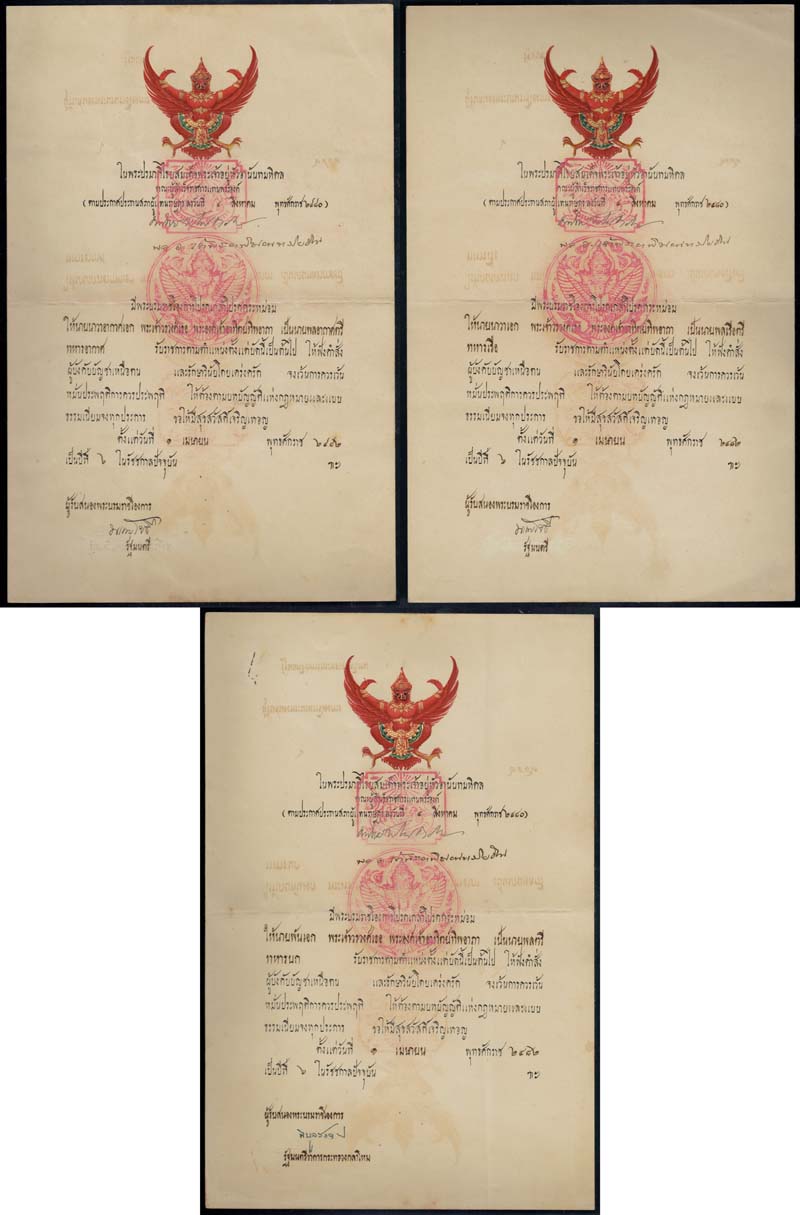 ในพระปรมาภิไธยสมเด็จพระเจ้าอยู่หัวอานันทมหิดล
คณะผู้สำเร็จราชการแทนพระองค์
(ตามประกาศประธานสภาผู้แทนราษฎร ลงวันที่ ๔ สิงหาคม พุทธศักราช ๒๔๘๐)
มีพระบรมราชโองการโปรดเกล้าโปรดกระหม่อม
ให้นายนาวาอากาศเอก พระเจ้าวรวงศ์เธอ พระองค์เจ้าอาทิตย์ทิพอาภา เป็นนายพลอากาศตรี
ทหารอากาศ รับราชการตามตำแหน่งตั้งแต่บัดนี้เป็นต้นไป ให้ฟังคำสั่ง
ผู้บังคับบัญชาเหนือตน และรักษาวินัยโดยเคร่งครัด จงเว้นการควรเว้น
หมั่นประพฤติการควรประพฤติ ให้ต้องตามบทบัญญัติแห่งกฎหมายและแบบ
ธรรมเนียมจงทุกประการ ขอให้มีสุขสวัสดิ์เจริญเทอญ
ตั้งแต่วันที่ ๑ เมษายน พุทธศักราช ๒๔๘๒
เป็นปีที่ ๖ ในรัชชกาลปัจจุบัน
ผู้รับสนองพระบรมราชโองการ
รัฐมนตรี
ในพระปรมาภิไธยสมเด็จพระเจ้าอยู่หัวอานันทมหิดล
คณะผู้สำเร็จราชการแทนพระองค์
(ตามประกาศประธานสภาผู้แทนราษฎร ลงวันที่ ๔ สิงหาคม พุทธศักราช ๒๔๘๐)
มีพระบรมราชโองการโปรดเกล้าโปรดกระหม่อม
ให้นายนาวาเอก พระเจ้าวรวงศ์เธอ พระองค์เจ้าอาทิตย์ทิพอาภา เป็นนายพลเรือตรี
ทหารเรือ รับราชการตามตำแหน่งตั้งแต่บัดนี้เป็นต้นไป ให้ฟังคำสั่ง
ผู้บังคับบัญชาเหนือตน และรักษาวินัยโดยเคร่งครัด จงเว้นการควรเว้น
หมั่นประพฤติการควรประพฤติ ให้ต้องตามบทบัญญัติแห่งกฎหมายและแบบ
ธรรมเนียมจงทุกประการ ขอให้มีสุขสวัสดิ์เจริญเทอญ
ตั้งแต่วันที่ ๑ เมษายน พุทธศักราช ๒๔๘๒
เป็นปีที่ ๖ ในรัชชกาลปัจจุบัน
ผู้รับสนองพระบรมราชโองการ
รัฐมนตรี
ในพระปรมาภิไธยสมเด็จพระเจ้าอยู่หัวอานันทมหิดล
คณะผู้สำเร็จราชการแทนพระองค์
(ตามประกาศประธานสภาผู้แทนราษฎร ลงวันที่ ๔ สิงหาคม พุทธศักราช ๒๔๘๐)
มีพระบรมราชโองการโปรดเกล้าโปรดกระหม่อม
ให้นายพันเอก พระเจ้าวรวงศ์เธอ พระองค์เจ้าอาทิตย์ทิพอาภา เป็นนายพลตรี
ทหารบก รับราชการตามตำแหน่งตั้งแต่บัดนี้เป็นต้นไป ให้ฟังคำสั่ง
ผู้บังคับบัญชาเหนือตน และรักษาวินัยโดยเคร่งครัด จงเว้นการควรเว้น
หมั่นประพฤติการควรประพฤติ ให้ต้องตามบทบัญญัติแห่งกฎหมายและแบบ
ธรรมเนียมจงทุกประการ ขอให้มีสุขสวัสดิ์เจริญเทอญ
ตั้งแต่วันที่ ๑ เมษายน พุทธศักราช ๒๔๘๒
เป็นปีที่ ๖ ในรัชชกาลปัจจุบัน
ผู้รับสนองพระบรมราชโองการ
พิบูลสงคราม
รัฐมนตรีว่าการกระทรวงกลาโหม